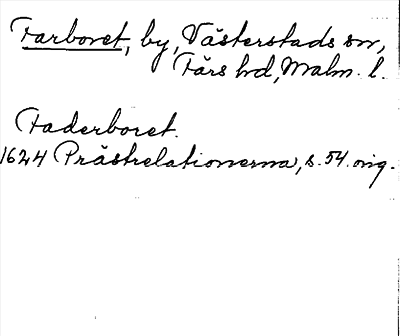 Farboret, by, Västerstads sn,
Färs hd, Malm. l.
Faderboret.
1624 Prästrelationerna, s. 54. orig.